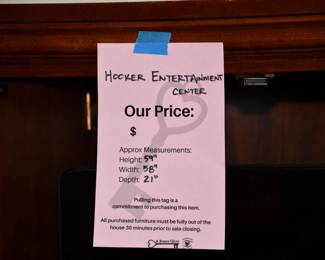 HOOKER ENTERTAINMENT
CENTER
Our Price:
$
Approx Measurements:
Height: 59"
Width: 58"
Depth: 21"
Pulling this tag is a
commitment to purchasing this item.
All purchased furniture must be fully out of the
house 30 minutes prior to sale closing.